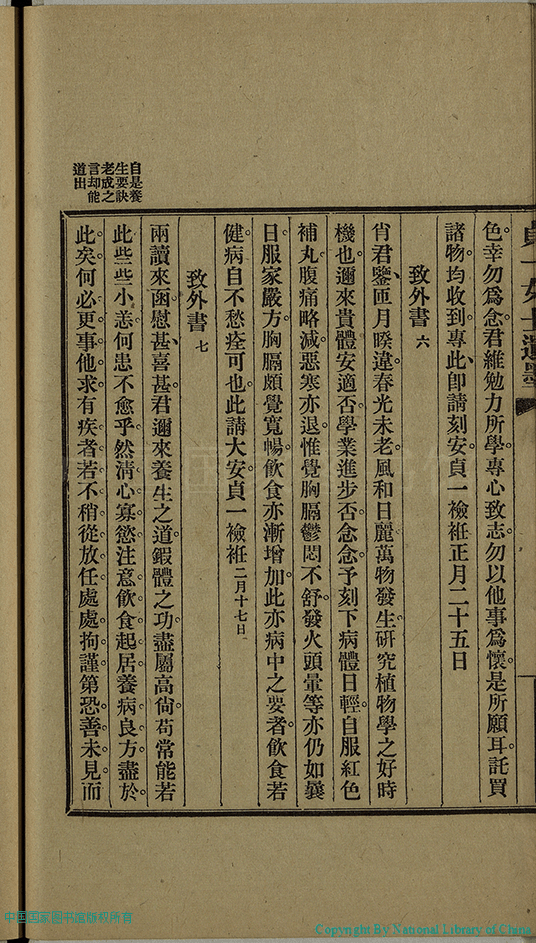 貞一女士遺墨
色幸勿爲念君維勉力所學專心致志勿以他事爲懷是所願耳託買
諸物均收到專此卽請刻安貞一襝衽正月二十五日
致外書 六
肖君鑒匝月暌違春光未老風和日麗萬物發生硏究植物學之好時
機也邇來貴體安適否學業進步否念念予刻下病體日輕自服紅色
補丸腹痛略減惡寒亦退惟覺胸膈鬱悶不舒發火頭暈等亦仍如曩
日服家嚴方胸膈頗覺寬暢飮食亦漸增加此亦病中之要者飮食若
健病自不愁痊可也此請大安貞一襝衽二月十七日
致外書 七
兩讀來函慰甚喜甚君邇來養生之道鍜體之功盡屬高尙苟常能若
此些些小恙何患不愈乎然淸心寡慾注意飮食起居養病良方盡於
此矣何必更事他求有疾者若不稍從放任處處拘謹第恐善未見而
自是養
生要訣
老成之
言却能
道出
中国国家图书馆版权所有
Copyright By National Library of China